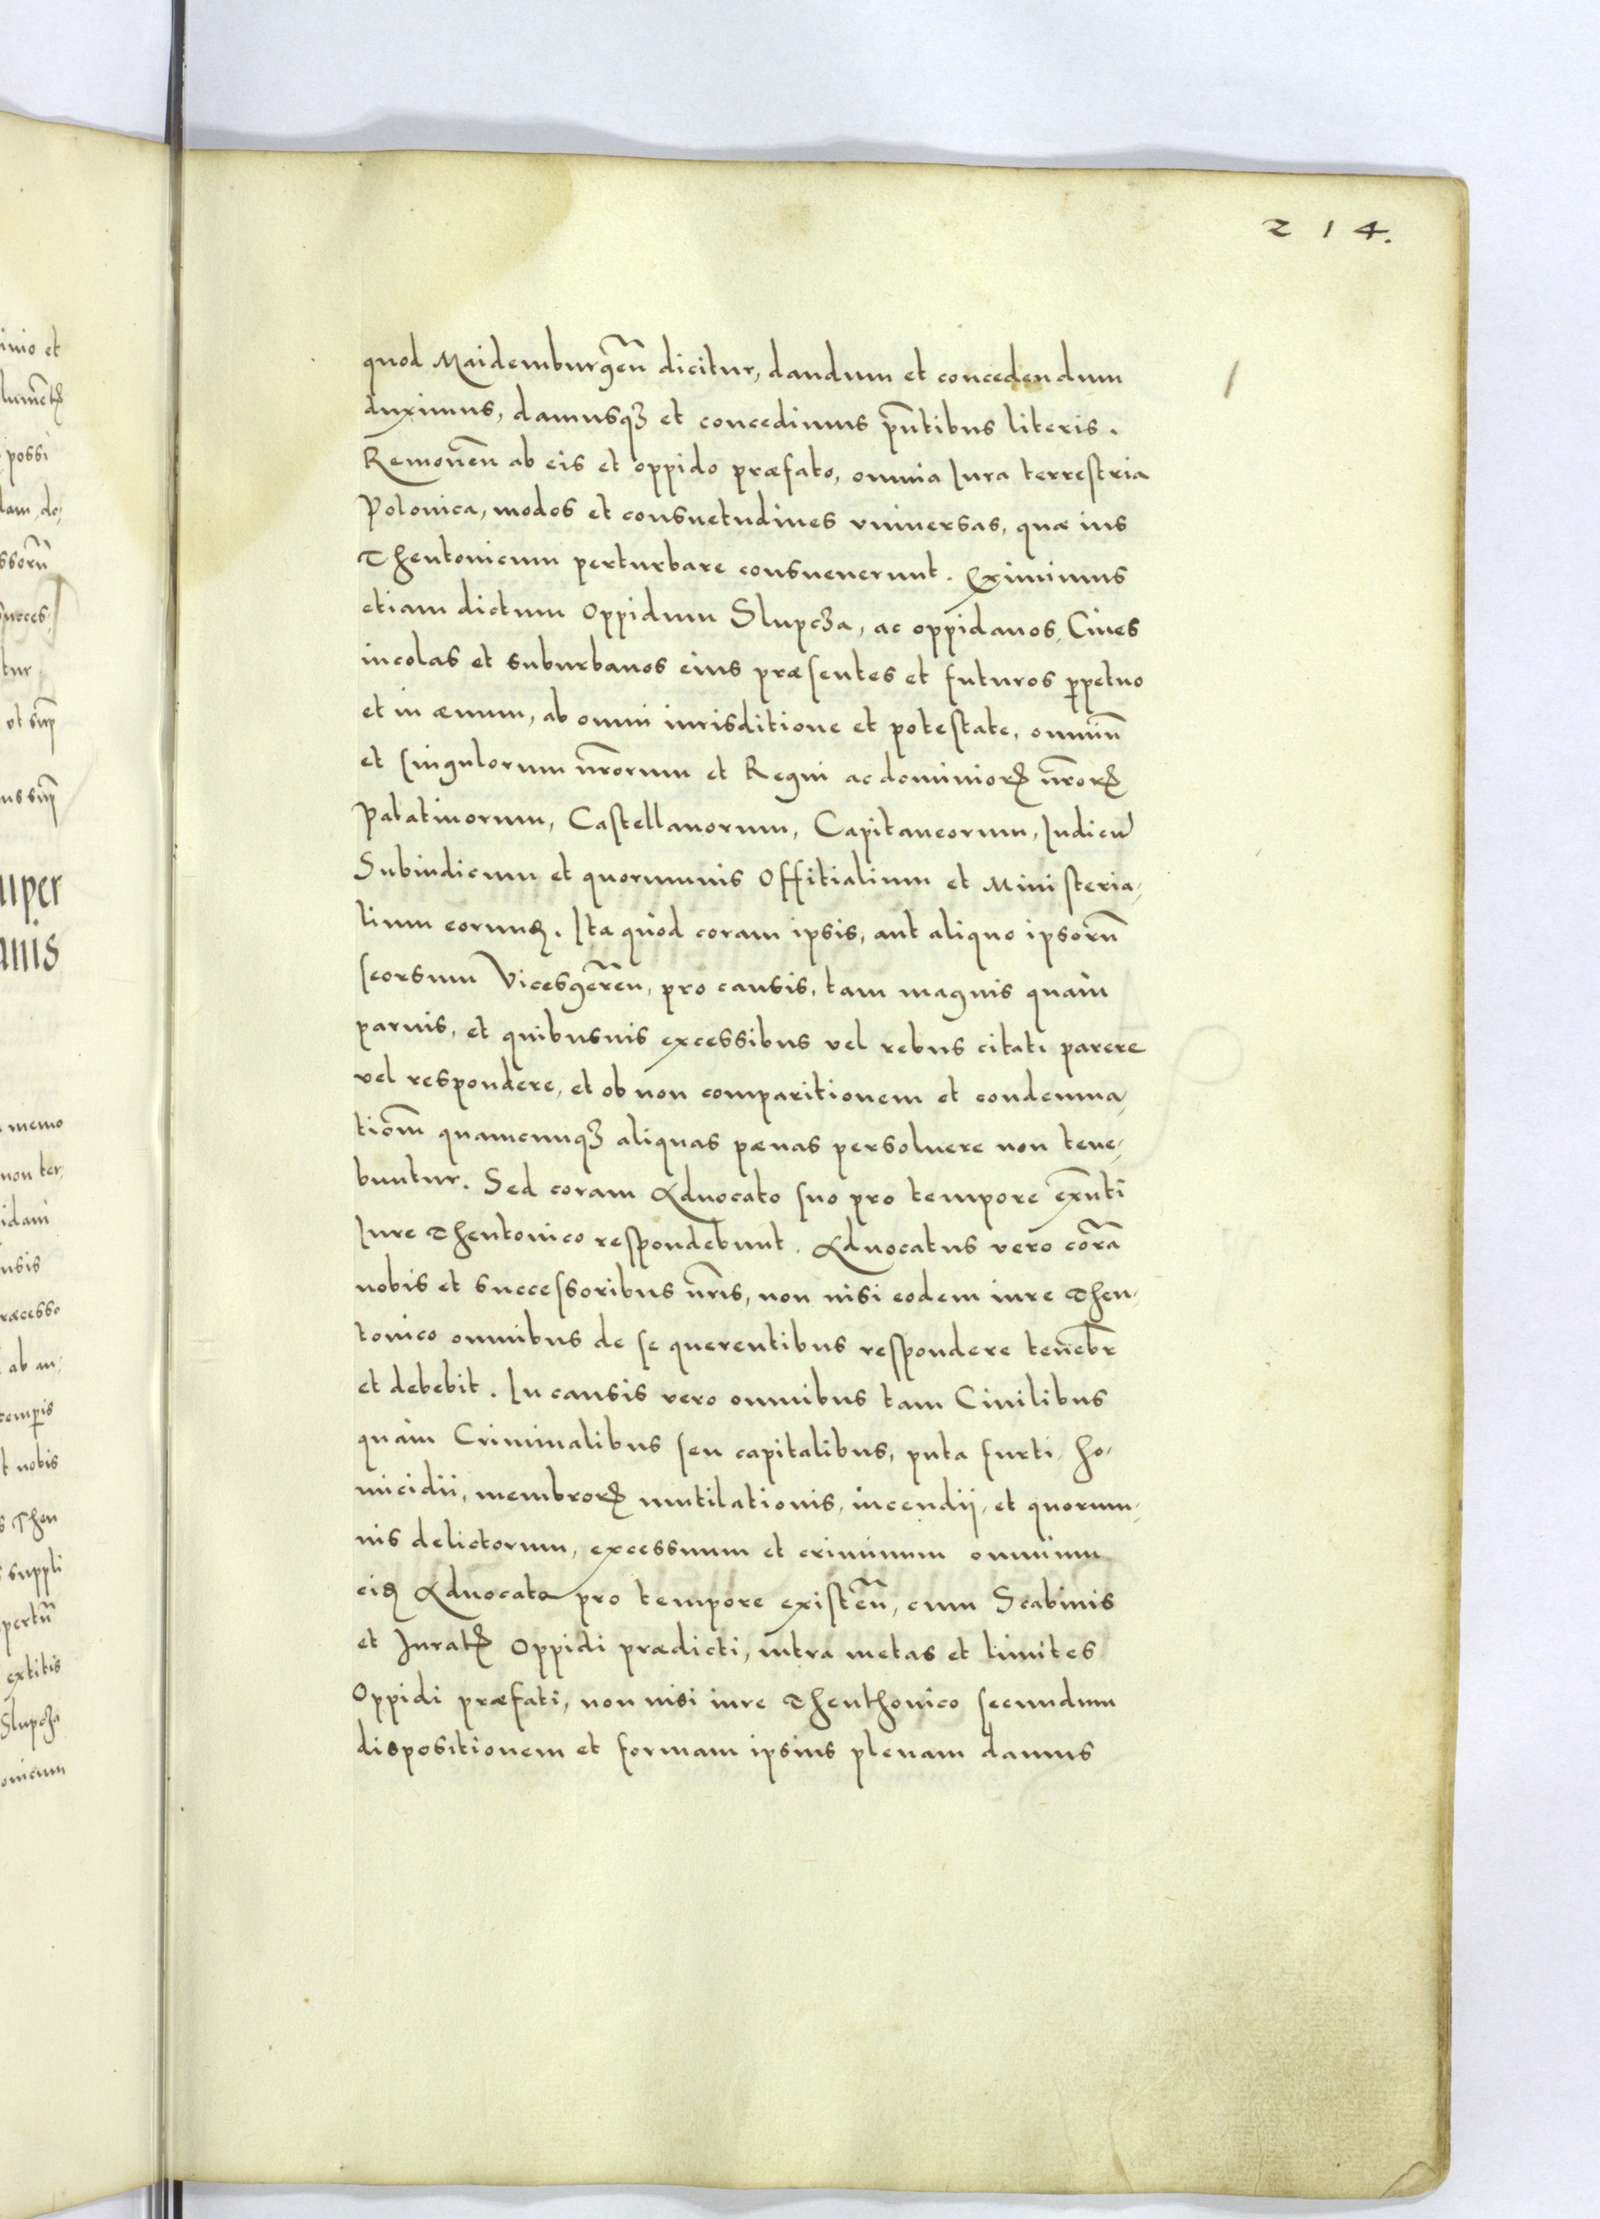 214.
quod Maidemburgeñ dicitur, dandum et concedendum
duximus, damusqꝫ et concedimus pñtibus literis.
Remoueñ ab eis et oppido præfato, omnia Iura terrestria
Polonica, modos et consuetudines vniuersas, quæ ius
Theutonicum perturbare consueuerunt. Eximimus
etiam dictum Oppidum Slupcʒa, ac oppidanos, Ciues
incolas et suburbanos eius præsentes et futuros ꝑpetuo
et in æuum, ab omni iurisditione et potestate, omniũ
et singulorum ñrorum et Regni ac dominioꝝ ñroꝝ
Palatinorum, Castellanorum, Capitaneorum, Iudicũ
Subiudicum et quorumuis Offitialium et Ministeria,
lium eorundꝫ. Ita quod coram ipsis, aut aliquo ipsorũ
seorsum Vicesgereñ, pro causis, tam magnis quàm
paruis, et quibusuis excessibus vel rebus citati parere
vel respondere, et ob non comparitionem et condemna,
tiõm quamcunqꝫ aliquas pænas persoluere non tene,
buntur. Sed coram Aduocato suo pro tempore exñti
Iure Theutonico respondebunt. Aduocatus vero corã
nobis et successoribus ñris, non nisi eodem iure Theu,
tonico omnibus de se querentibus respondere teneb̃r
et debebit. In causis vero omnibus tam Ciuilibus
quàm Criminalibus seu capitalibus, puta furti, ho,
micidii, membroꝝ mutilationis, incendij, et quorum,
uis delictorum, excessuum et criminum omnium
eidꝫ Aduocato pro tempore existeñ, cum Scabinis
et Juratꝭ Oppidi prædicti, intra metas et limites
Oppidi præfati, non nisi iure Theuthonico secundum
dispositionem et formam ipsius plenam damus